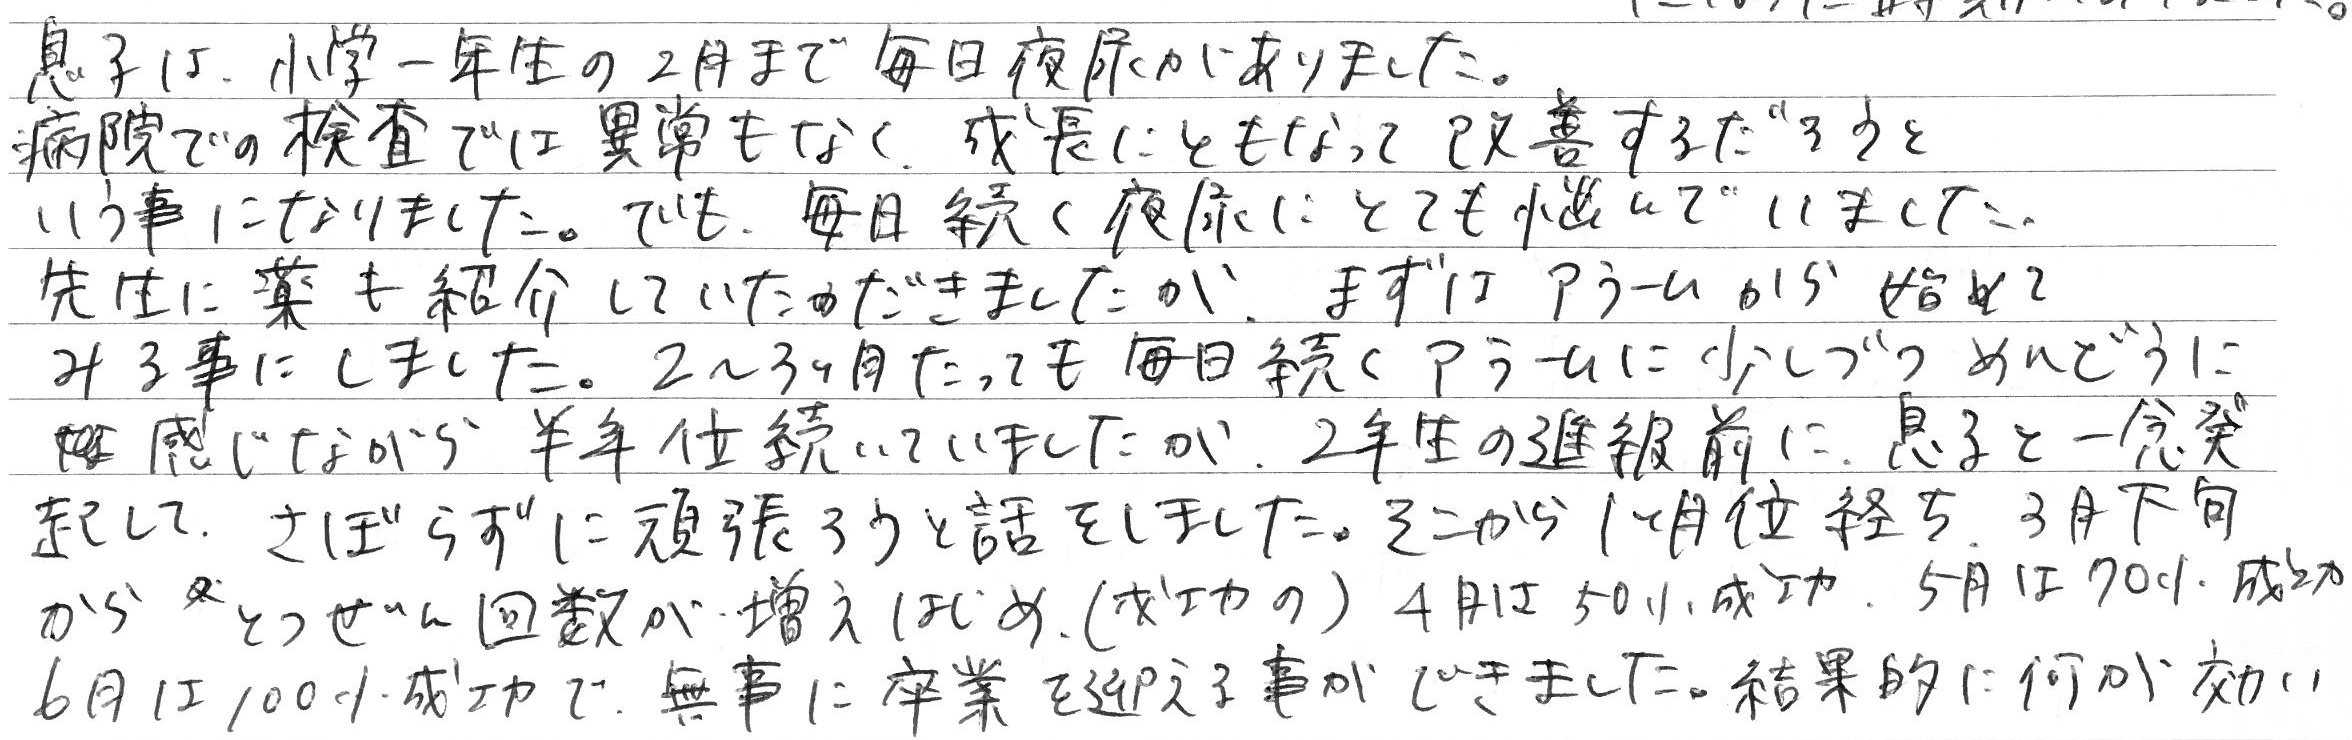 息子は、小学一年生の2月まで毎日夜尿がありました。
病院での検査では異常もなく、成長にともなって改善するだろうと
いう事になりました。でも、毎日続く夜尿にとても悩んでいました。
先生に薬も紹介していただきましたが、まずはアラームから始めて
みる事にしました。2〜3ヶ月たっても毎日続くアラームに少しづつめんどうに
感じながら半年位続いていましたが、2年生の進級前に、息子と一念発
起して、さぼらずに頑張ろうと話をしました。そこから1ヶ月位経ち、3月下旬
から とつぜん回数が増えはじめ、(成功の) 4月は50%成功、5月は70%成功
6月は100%成功で、無事に卒業を迎える事ができました。結果的に何が効い